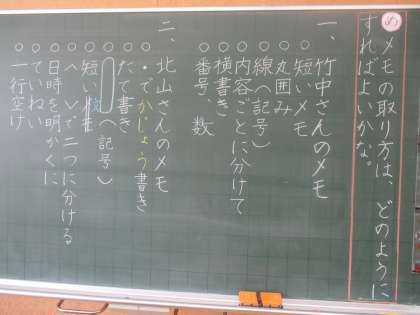 め メモの取り方は、どのように
すればよいかな。
一、竹中さんのメモ
○短いメモ
○丸囲み
○線（記号）
○内容ごとに分けて
○横書き
○番号、数
二、北山さんのメモ
○・でかじょう書き
○たて書き
○（記号）
○短い
○〈 〉で二つに分ける
○日時を明かくに
○ていねい
○一行空け